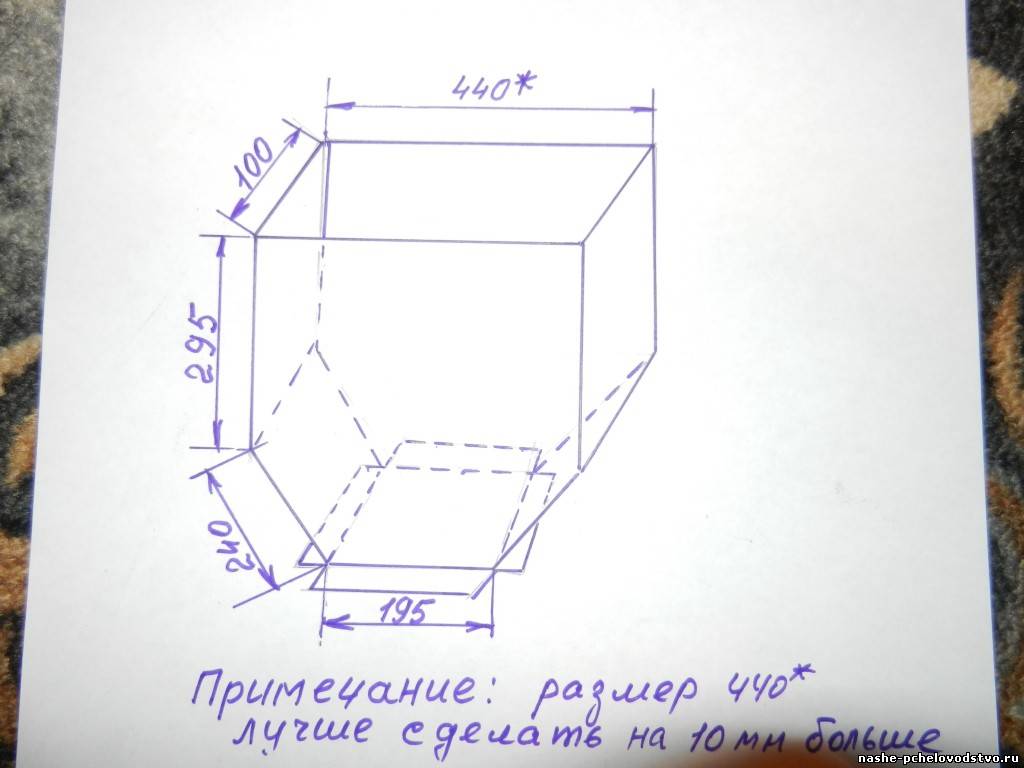 440*
100
295
240
195
Примечание: размер 440*
лучше сделать на 10 мм больше
nashe-pchelovodstvo.ru